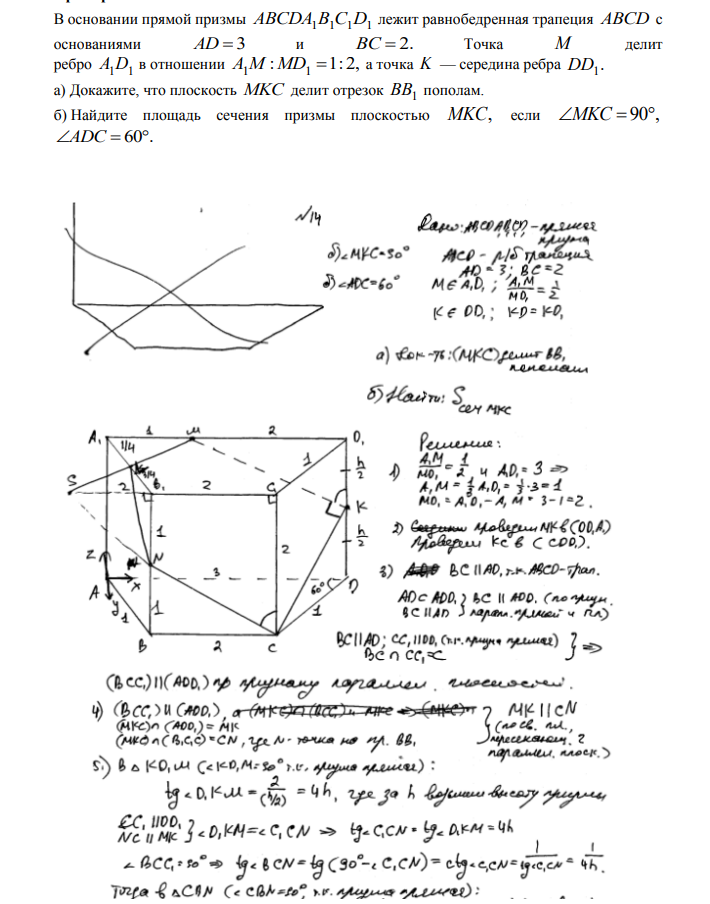 В основании прямой призмы ABCDA₁B₁C₁D₁ лежит равнобедренная трапеция ABCD с
основаниями AD = 3 и BC = 2. Точка M делит
ребро A₁D₁ в отношении A₁M : MD₁ = 1 : 2, а точка K — середина ребра DD₁.
а) Докажите, что плоскость MKC делит отрезок BB₁ пополам.
б) Найдите площадь сечения призмы плоскостью MKC, если ∠MKC = 90°,
∠ADC = 60°.
№14
Дано: ABCDA₁B₁C₁D₁ – прямая
призма
б) ∠MKC = 90°
ABCD – р/б трапеция
AD = 3; BC = 2
∠ADC = 60°
M ∈ A₁D₁; A₁M/MD₁ = 1/2
K ∈ DD₁; KD = KD₁
а) Док-ть: (MKC) делит BB₁
пополам
б) Найти: S сеч MKC
A₁ 1 M 2 D₁
1/4
1
h/2
S
2 B₁ 2 C₁
K
1
2
h/2
N
Z
3
60° D
A X
y 1
1
1
B 2 C
Решение:
1) A₁M/MD₁ = 1/2 и A₁D₁ = 3 ⇒
A₁M = 1/3 A₁D₁ = 1/3·3 = 1
MD₁ = A₁D₁ – A₁M = 3–1 = 2.
2) Проведем MK в (DD₁A₁)
Проведем KC в (CDD₁).
3) BC || AD, т.к. ABCD – трап.
AD ⊂ ADD₁ } BC || ADD₁ (по призн.
BC || AD паралл. прямой и пл)
BC || AD; CC₁ || DD₁ (т.к. призма прямая) } ⇒
BC ∩ CC₁ = C
(BCC₁) || (ADD₁) по признаку параллел. плоскостей.
4) (BCC₁) || (ADD₁), } MK || CN
(MKC) ∩ (ADD₁) = MK (по св. пл.,
(MKC) ∩ (B₁C₁C) = CN, где N – точка на пр. BB₁ пересекающ. 2
параллел. плоск.)
5.) В △ KD₁M (∠KD₁M = 90° т.к. призма прямая):
tg∠D₁KM = 2/(h/2) = 4h, где за h возьмем высоту призмы
CC₁ || DD₁ } ∠D₁KM = ∠C₁CN ⇒ tg∠C₁CN = tg∠D₁KM = 4h
NC || MK
∠BCC₁ = 90° ⇒ tg∠BCN = tg(90° – ∠C₁CN) = ctg∠C₁CN = 1/tg∠C₁CN = 1/4h.
Тогда в △CBN (∠CBN = 90°, т.к. призма прямая):